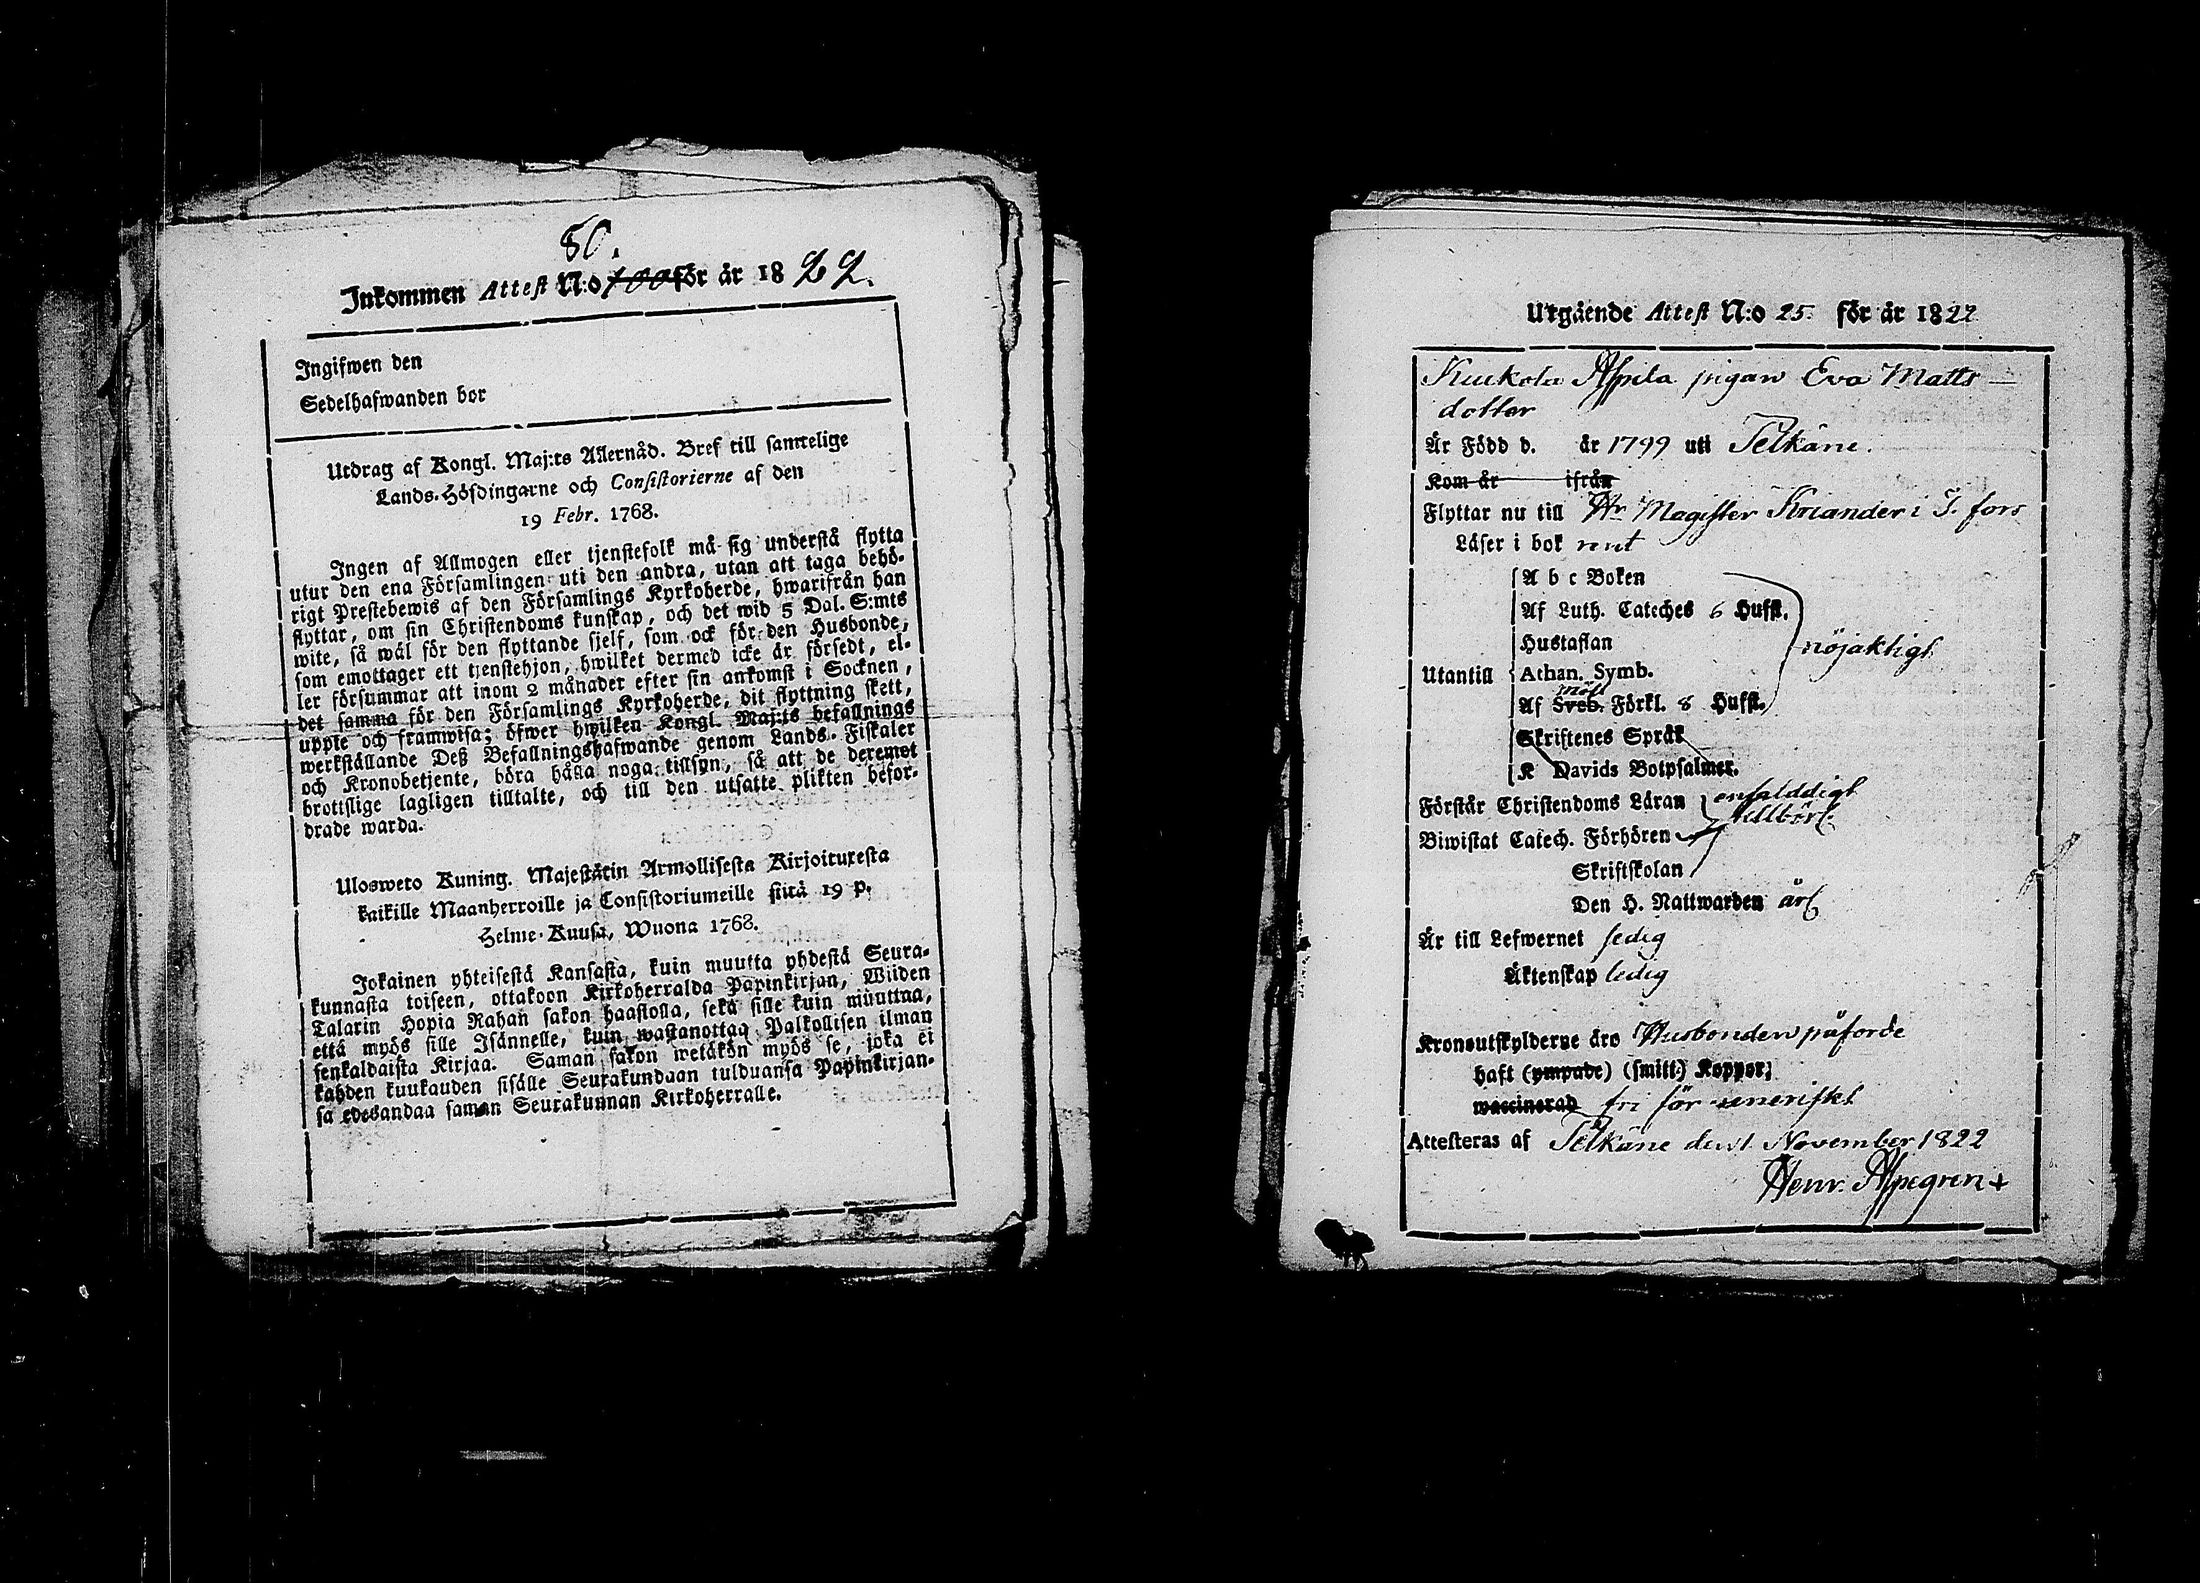 80.
Inkommen Attest N:o 100 för år 1822.
Ingifwen den
Sedelhafwanden bor
Utdrag af Kongl. Maj:ts Allernåd. Bref till samtelige
Lands-Höfdingarne och Consistorierne af den
19 Febr. 1768.
Ingen af Allmogen eller tjenstefolk må sig understå flytta
utur den ena Församlingen uti den andra, utan att taga behö-
rigt Prestebewis af den Församlings Kyrkoherde, hwarifrån han
flyttar, om sin Christendoms kunskap, och det wid 5 Dal. S:mts
wite, så wäl för den flyttande sjelf, som ock för den Husbonde,
som emottager ett tjenstehjon, hwilket dermed icke är försedt, el-
ler försummar att inom 2 månader efter sin ankomst i Socknen,
det samma för den Församlings Kyrkoherde, dit flyttning skett,
uppte och framwisa; öfwer hwilken Kongl. Maj:ts befallnings
werkställande Deß Befallningshafwande genom Lands-Fiskaler
och Kronobetjente, böra hålla noga tillsyn, så att de deremot
brottslige lagligen tilltalte, och till den utsatte plikten befor-
drade warda.
Ulosweto Kuning. Majestätin Armollisesta Kirjoituxesta
kaikille Maanherroille ja Consistoriumeille siitä 19 p.
Helme-Kuusa, Wuona 1768.
Jokainen yhteisestä Kansasta, kuin muutta yhdestä Seura-
kunnasta toiseen, ottakoon Kirkoherralda Papinkirjan, Wiiden
Talarin Hopia Rahan sakon haastolla, sekä sille kuin muuttaa,
että myös sille Isännelle, kuin wastanottaa Palkollisen ilman
senkaldaista Kirjaa. Saman sakon wetäkön myös se, joka ei
kahden kuukauden sisälle Seurakundaan tulduansa Papinkirjan-
sa edesandaa saman Seurakunnan Kirkoherralle.
Utgående Attest N:o 25. för år 1822
Kuukola Alpila pigan Eva Matts-
dotter
Är Född d. år 1799 uti Pelkäne.
Kom år ifrån
Flyttar nu till Hr Magister Kriander i T. fors
Läser i bok rent
A b c Boken
Af Luth. Cateches 6 Hufst.
Hustaflan
nöjaktigt
Utantill Athan. Symb.
möll
Af Sveb. Förkl. 8 Hufst.
Skriftenes Språk
K Davids Botpsalmer.
Förstår Christendoms Läran enfalddigt
Biwistat Catech. Förhören tillbörl.
Skriftskolan
Den H. Nattwarden årl
Är till Lefwernet sedig
Äktenskap ledig
Kronoutskylderne äro Husbonden påförde
haft (ympade) (smitt.) Koppor,
waccinerad fri för veneriskt
Attesteras af Pelkäne den 1 November 1822
Henr. Alpegren